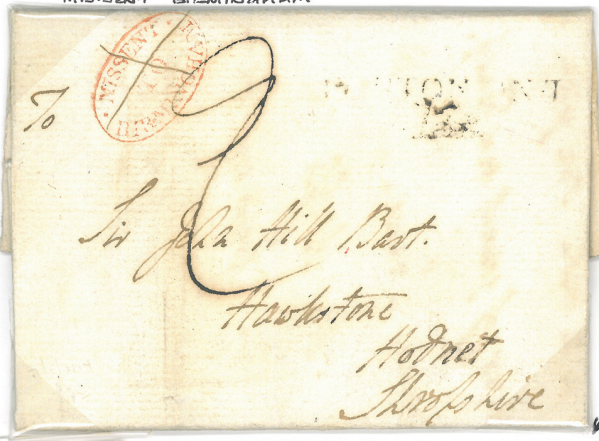 MISSENT
TO
BIRMINGHAM
2
To
Sir John Hill Bart.
Hawkstone
Hodnet
Shropshire